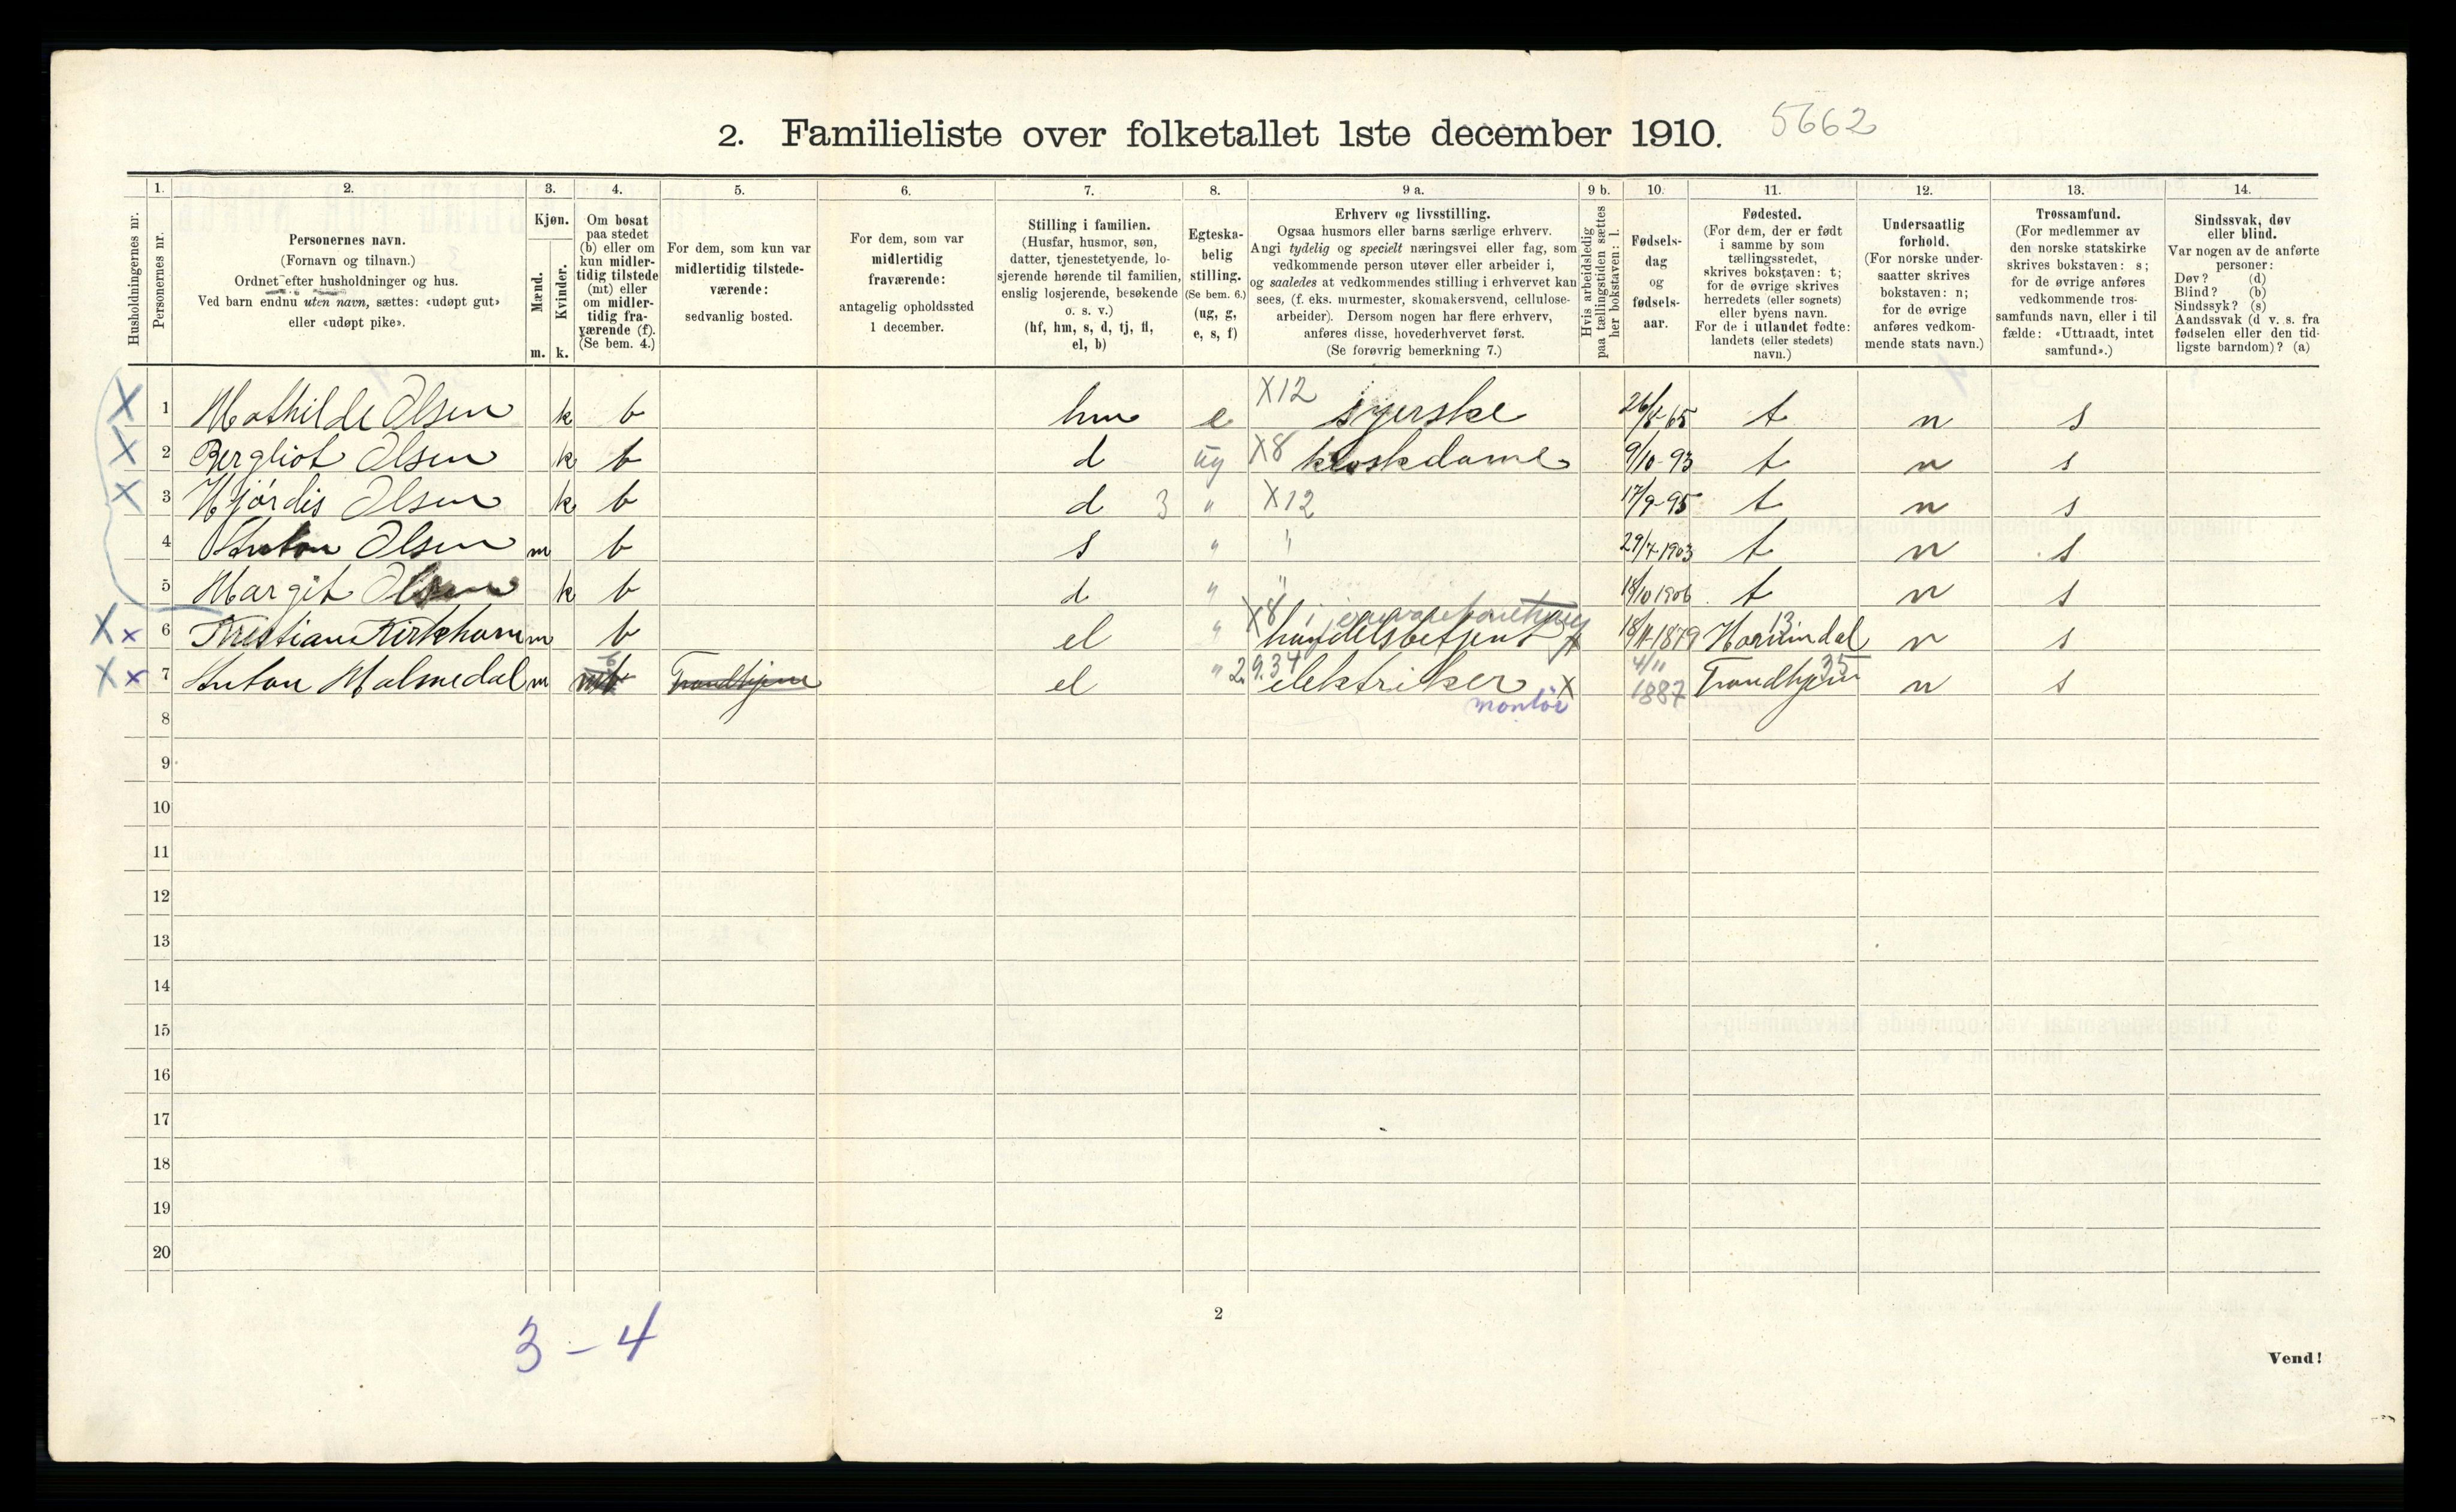 2. Familieliste over folketallet 1ste december 1910. 5662
Husholdningernes nr.
1. 2. 3. 4. 5. 6. 7. 8. 9 a. 9 b. 10. 11. 12. 13. 14.
Personernes nr.
Personernes navn.
(Fornavn og tilnavn.)
Ordnet efter husholdninger og hus.
Ved barn endnu uten navn, sættes: «udøpt gut»
eller «udøpt pike».
Kjøn.
Mænd.
Kvinder.
m. k.
Om bosat
paa stedet
(b) eller om
kun midler-
tidig tilstede
(mt) eller
om midler-
tidig fra-
værende (f).
(Se bem. 4.)
For dem, som kun var
midlertidig tilstede-
værende:
sedvanlig bosted.
For dem, som var
midlertidig
fraværende:
antagelig opholdssted
1 december.
Stilling i familien.
(Husfar, husmor, søn,
datter, tjenestetyende, lo-
sjerende hørende til familien,
enslig losjerende, besøkende
o. s. v.)
(hf, hm, s, d, tj, fl,
el, b)
Egteska-
belig
stilling.
(Se bem. 6.)
(ug, g,
e, s, f)
Erhverv og livsstilling.
Ogsaa husmors eller barns særlige erhverv.
Angi tydelig og specielt næringsvei eller fag, som
vedkommende person utøver eller arbeider i,
og saaledes at vedkommendes stilling i erhvervet kan
sees, (f. eks. murmester, skomakersvend, cellulose-
arbeider). Dersom nogen har flere erhverv,
anføres disse, hovederhvervet først.
(Se forøvrig bemerkning 7.)
Hvis arbeidsledig
paa tællingstiden sættes
her bokstaven: l.
Fødsels-
dag
og
fødsels-
aar.
Fødested.
(For dem, der er født
i samme by som
tællingsstedet,
skrives bokstaven: t;
for de øvrige skrives
herredets (eller sognets)
eller byens navn.
For de i utlandet fødte:
landets (eller stedets)
navn.)
Undersaatlig
forhold.
(For norske under-
saatter skrives
bokstaven: n;
for de øvrige
anføres vedkom-
mende stats navn.)
Trossamfund.
(For medlemmer av
den norske statskirke
skrives bokstaven: s;
for de øvrige anføres
vedkommende tros-
samfunds navn, eller i til
fælde: «Uttraadt, intet
samfund».)
Sindssvak, døv
eller blind.
Var nogen av de anførte
personer:
Døv? (d)
Blind? (b)
Sindssyk? (s)
Aandssvak (d v. s. fra
fødselen eller den tid-
ligste barndom)? (a)
X 1 Mathilde Olsen k b hm e X12 syerske 26/8-65 t n s
X 2 Bergliot Olsen k b d ug X8 kioskdame 9/10-93 t n s
X 3 Hjørdis Olsen k b d 3 " X12 17/9-95 t n s
4 Anton Olsen m b s " " 29/7-1903 t n s
5 Margit Olsen k b d " " 18/10 1906 t n s
X x 6 Kristian Kirkhorn m b el " X8 handelsbetjent 18/11-1879 Hornindal 13 n s
X x 7 Anton Malmedal m b Trondhjem el " 2.9.34 elektriker X 4/11 1887 Trondhjem 35 n s
montör
8
9
10
11
12
13
14
15
16
17
18
19
20
2
3 - 4
Vend!